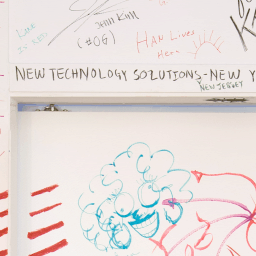 JEAN KIM
(#06)
HAN LIVES
HERE
NEW TECHNOLOGY SOLUTIONS - NEW Y
NEW JERSEY